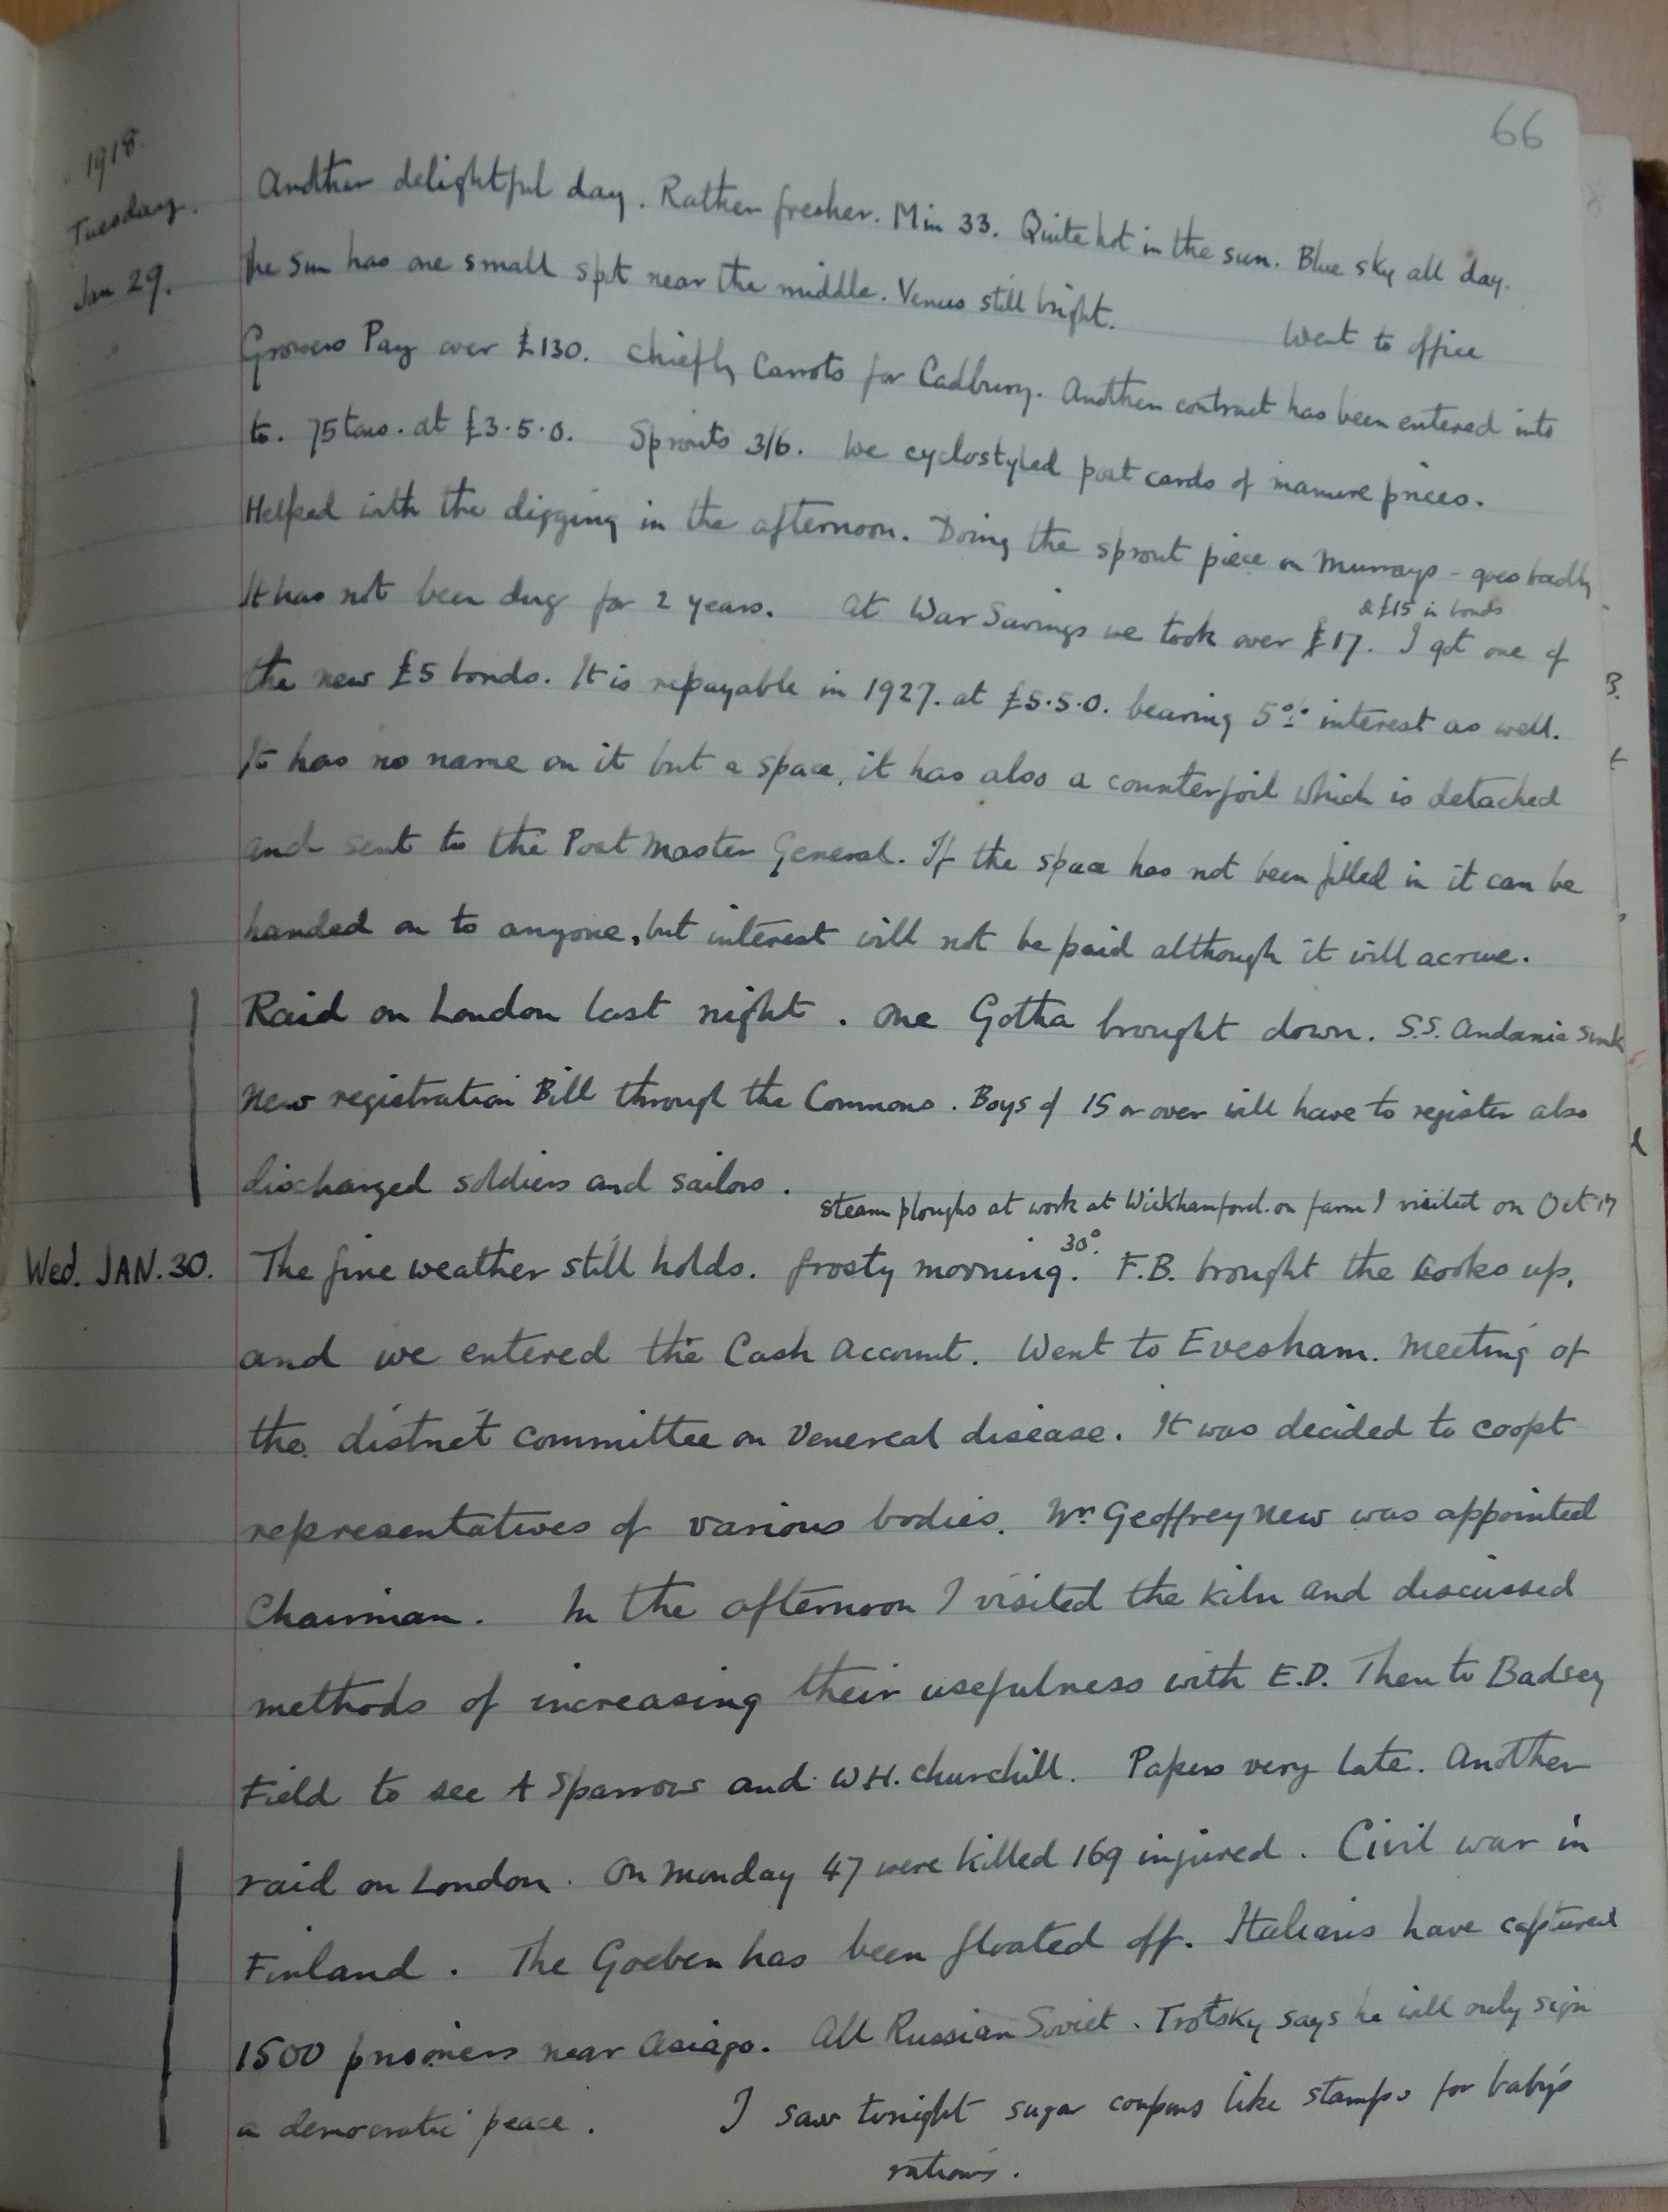 66
1918.
Tuesday.
Jan 29.
Another delightful day. Rather fresher. Min 33. Quite hot in the sun. Blue sky all day.
The sun has one small spot near the middle. Venus still bright. Went to office
Growers Pay over £130. Chiefly Carrots for Cadbury. Another contract has been entered into
to. 75 tons. at £3.5.0. Sprouts 3/6. We cyclostyled post cards of manure prices.
Helped with the digging in the afternoon. Doing the sprout piece on Murrays - goes badly
It has not been dug for 2 years. At War Savings we took over £17. I got one of
& £15 in bonds
the new £5 bonds. It is repayable in 1927. at £5.5.0. bearing 5% interest as well.
It has no name on it but a space, it has also a counterfoil which is detached
and sent to the Post Master General. If the space has not been filled in it can be
handed on to anyone, but interest will not be paid although it will acrue.
Raid on London last night. One Gotha brought down. S.S. Andania sunk
New registration Bill through the Commons. Boys of 15 or over will have to register also
discharged soldiers and sailors.
Steam ploughs at work at Wickhamford on farm I visited on Oct 17
Wed. JAN. 30. The fine weather still holds. frosty morning. 30°. F.B. brought the books up,
and we entered the Cash Account. Went to Evesham. Meeting of
the district committee on Venereal disease. It was decided to coopt
representatives of various bodies. Mr Geoffrey New was appointed
Chairman. In the afternoon I visited the kiln and discussed
methods of increasing their usefulness with E.D. Then to Badsey
Field to see A Sparrow and W.H. Churchill. Papers very late. Another
raid on London. On Monday 47 were killed 169 injured. Civil war in
Finland. The Goeben has been floated off. Italians have captured
1500 prisoners near Asiago. All Russian Soviet. Trotsky says he will only sign
a democratic peace. I saw tonight sugar coupons like stamps for baby's
rations.